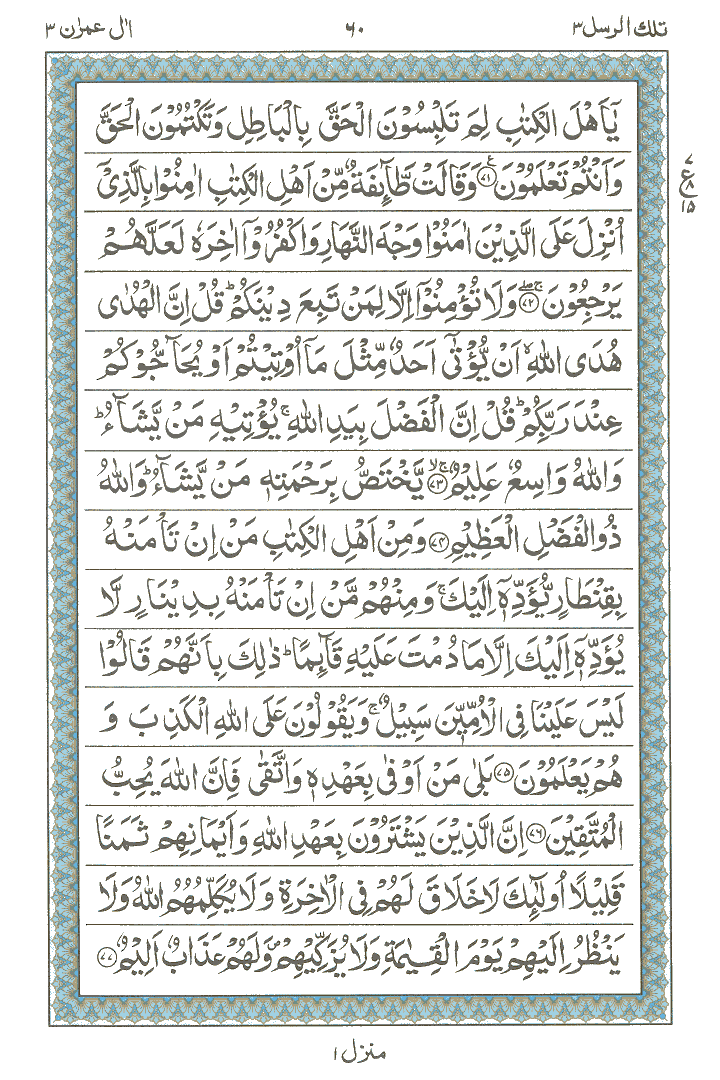 تلك الرسل ٣
٦٠
اٰل عمرٰن ٣
يٰٓاَهْلَ الْكِتٰبِ لِمَ تَلْبِسُوْنَ الْحَقَّ بِالْبَاطِلِ وَتَكْتُمُوْنَ الْحَقَّ
وَاَنْتُمْ تَعْلَمُوْنَ ۧ﴿٧١﴾ وَقَالَتْ طَّآئِفَةٌ مِّنْ اَهْلِ الْكِتٰبِ اٰمِنُوْا بِالَّذِيْۤ
ع
٧
٨
١٥
اُنْزِلَ عَلَى الَّذِيْنَ اٰمَنُوْا وَجْهَ النَّهَارِ وَاكْفُرُوْۤا اٰخِرَهٗ لَعَلَّهُمْ
يَرْجِعُوْنَ ۚۖ﴿٧٢﴾ وَلَا تُؤْمِنُوْۤا اِلَّا لِمَنْ تَبِعَ دِيْنَكُمْ ؕ قُلْ اِنَّ الْهُدٰى
هُدَى اللّٰهِ ۙ اَنْ يُّؤْتٰۤى اَحَدٌ مِّثْلَ مَاۤ اُوْتِيْتُمْ اَوْ يُحَآجُّوْكُمْ
عِنْدَ رَبِّكُمْ ؕ قُلْ اِنَّ الْفَضْلَ بِيَدِ اللّٰهِ ۚ يُؤْتِيْهِ مَنْ يَّشَآءُ ؕ
وَاللّٰهُ وَاسِعٌ عَلِيْمٌ ۚۙ﴿٧٣﴾ يَّخْتَصُّ بِرَحْمَتِهٖ مَنْ يَّشَآءُ ؕ وَاللّٰهُ
ذُو الْفَضْلِ الْعَظِيْمِ ﴿٧٤﴾ وَمِنْ اَهْلِ الْكِتٰبِ مَنْ اِنْ تَاْمَنْهُ
بِقِنْطَارٍ يُّؤَدِّهٖۤ اِلَيْكَ ۚ وَمِنْهُمْ مَّنْ اِنْ تَاْمَنْهُ بِدِيْنَارٍ لَّا
يُؤَدِّهٖۤ اِلَيْكَ اِلَّا مَا دُمْتَ عَلَيْهِ قَآئِمًا ؕ ذٰلِكَ بِاَنَّهُمْ قَالُوْا
لَيْسَ عَلَيْنَا فِى الْاُمِّيّٖنَ سَبِيْلٌ ۚ وَيَقُوْلُوْنَ عَلَى اللّٰهِ الْكَذِبَ وَ
هُمْ يَعْلَمُوْنَ ﴿٧٥﴾ بَلٰى مَنْ اَوْفٰى بِعَهْدِهٖ وَاتَّقٰى فَاِنَّ اللّٰهَ يُحِبُّ
الْمُتَّقِيْنَ ﴿٧٦﴾ اِنَّ الَّذِيْنَ يَشْتَرُوْنَ بِعَهْدِ اللّٰهِ وَاَيْمَانِهِمْ ثَمَنًا
قَلِيْلًا اُولٰٓئِكَ لَا خَلَاقَ لَهُمْ فِى الْاٰخِرَةِ وَلَا يُكَلِّمُهُمُ اللّٰهُ وَلَا
يَنْظُرُ اِلَيْهِمْ يَوْمَ الْقِيٰمَةِ وَلَا يُزَكِّيْهِمْ ۪ وَلَهُمْ عَذَابٌ اَلِيْمٌ ﴿٧٧﴾
منزل ١